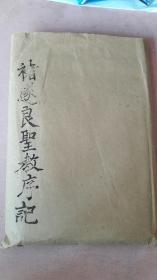 褚遂良聖教序記